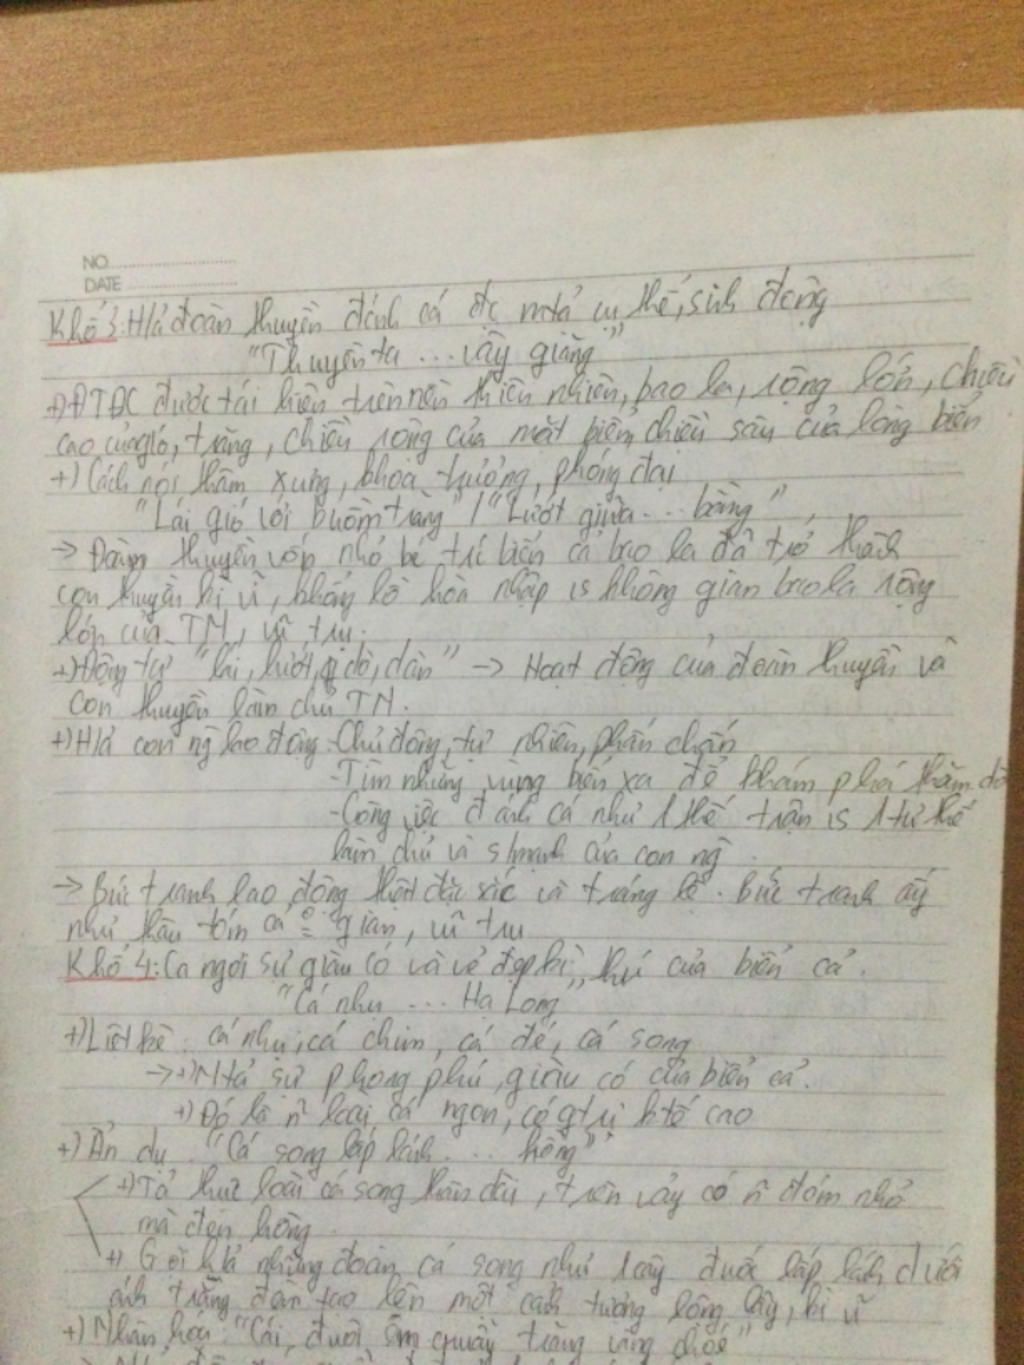 NO
DATE
Khổ 3: H/ả đoàn thuyền đánh cá đc mtả cụ thể, sinh động
"Thuyền ta ... vây giăng"
+) ĐTĐC được tái hiện trên nền thiên nhiên, bao la, rộng lớn, chiều
cao của gió, trăng, chiều rộng của mặt biển, chiều sâu của lòng biển
+) Cách nói thậm xưng, khoa trương, phóng đại
"Lái gió với buồm trăng" / "Lướt giữa ... bằng"
-> Đoàn thuyền vốn nhỏ bé trc biển cả bao la đã trở thành
con thuyền kì vĩ, khổng lồ hòa nhập vs không gian bao la rộng
lớn của TN, vũ trụ.
+) Động từ "lái, lướt, dò, dàn" -> Hoạt động của đoàn thuyền và
con thuyền làm chủ TN.
+) H/ả con ng lao động - Chủ động, tự nhiên, phấn chấn
- Tìm những vùng biển xa để khám phá thăm dò
- Công việc đánh cá như 1 thế trận vs 1 tư thế
làm chủ và s/mạnh của con ng
-> Bức tranh lao động thật đặc sắc và tráng lệ. Bức tranh ấy
như thâu tóm cả gian, vũ trụ
Khổ 4: Ca ngợi sự giàu có và vẻ đẹp kì thú của biển cả.
"Cá nhụ ... Hạ Long"
+) Liệt kê: cá nhụ, cá chim, cá đé, cá song
-> +) Mtả sự phong phú, giàu có của biển cả.
+) Đó là n~ loài cá ngon, có gtrị ktế cao
+) Ẩn dụ "Cá song lấp lánh ... hồng"
+) Tả thực loài cá song thân dài, trên vảy có n~ đốm nhỏ
mà đen hồng
+) Gợi h/ả những đoàn cá song như 1 cây đuốc lấp lánh dưới
ánh trăng đêm tạo lên một cảnh tượng lộng lẫy, kì vĩ
+) Nhân hóa: "Cái đuôi em quẫy trăng vàng chóe"